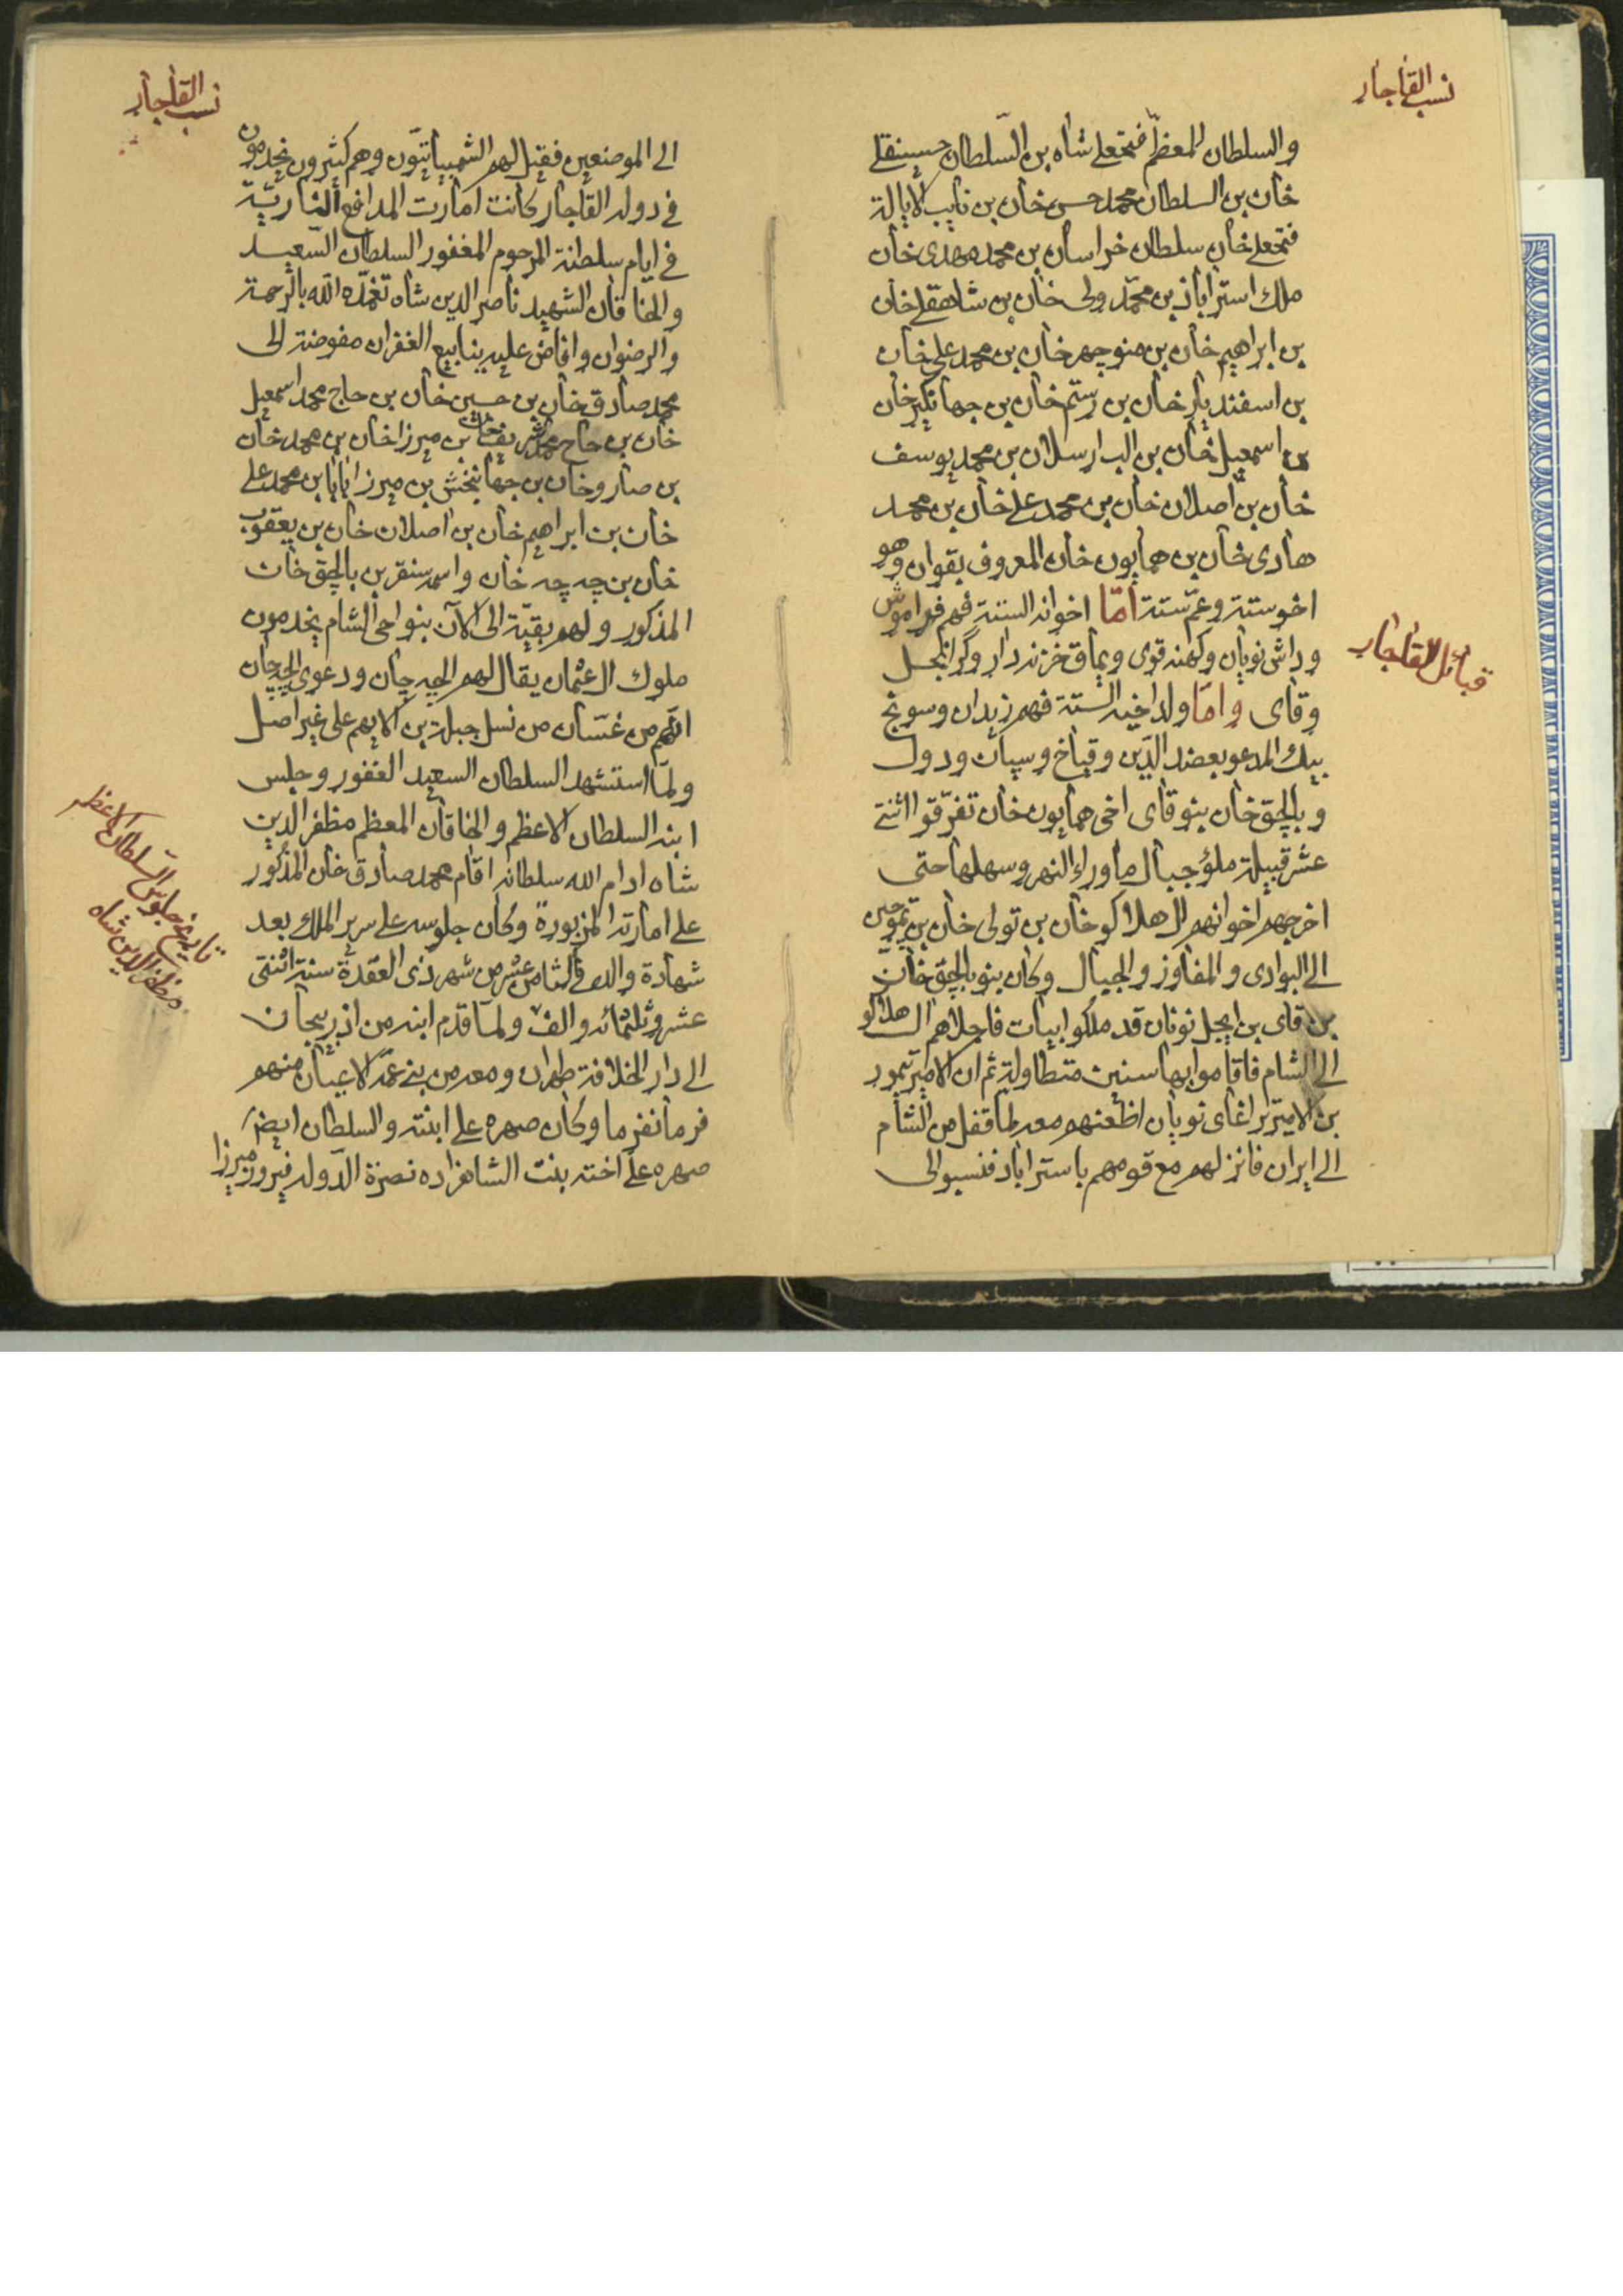 نسب القاجار
والسلطان المعظم فتحعلی شاه بن السلطان حسینقلی
خان بن السلطان محمد حسن خان بن نایب الایالة
فتحعلی خان سلطان خراسان بن محمد مهدی خان
ملك استراباذ بن محمد ولی خان بن شاهقلی خان
بن ابراهیم خان بن منوچهر خان بن محمد علی خان
بن اسفندیار خان بن رستم خان بن جهانگیر خان
بن اسمعیل خان بن الب ارسلان بن محمد یوسف
خان بن اصلان خان بن محمد علی خان بن محمد
هادی خان بن همایون خان المعروف بقوان وهو
اخو ستة وعم ستة اما اخوانه الستة فهم فراموش
وداش نویان وکهنه قوی ویماق خزندار وگرانجل
وقای واما ولد اخیه الستة فهم زیدان وسونج
بیك المدعو بعضد الدین وقیاخ وسپان ودول
وبالچق خان بنو قای اخی همایون خان تفرقوا اثنتی
عشر قبیلة ملؤ جبال ماوراء النهر وسهلها حتی
اخرجهم اخوانهم ال هلاکو خان بن تولی خان بن تموجین
الی البوادی والمفاوز والجبال وکان بنو بالچق خان
بن قای بن ایجل نویان قد ملکوا بیات فاجلاهم ال هلاکو
الی الشام فاقاموا بها سنین متطاولة ثم ان الامیر تیمور
بن الامیر تراغای نویان اظعنهم معه لما قفل من الشام
الی ایران فانزلهم مع قومهم باستراباد فنسبو الی
قبائل القاجار
نسب القاجار
الی الموضعین فقیل لهم الشمبیاتیون وهم کثیرون یخدمون
فی دوله القاجار کانت امارت المدافع الناریة
فی ایام سلطنة المرحوم المغفور السلطان السعید
والخاقان الشهید ناصر الدین شاه تغمده الله بالرحمة
والرضوان وافاض علیه ینابیع الغفران مفوضة الی
محمد صادق خان بن حسین خان بن حاج محمد اسمعیل
خان بن حاج محمد شریف خان بن میرزا خان بن محمد خان
بن صارو خان بن جهانبخش بن میرزا بابا بن محمد علی
خان بن ابراهیم خان بن اصلان خان بن یعقوب
خان بن چه چه خان واسمه سنقر بن بالچق خان
المذکور ولهم بقیة الی الآن بنواحی الشام یخدمون
ملوك ال عثمان یقال لهم الچه چان ودعوی الچه چان
انهم من غسان من نسل جبلة بن الایهم علی غیر اصل
ولما استشهد السلطان السعید الغفور وجلس
ابنه السلطان الاعظم والخاقان المعظم مظفر الدین
شاه ادام الله سلطانه اقام محمد صادق خان المذکور
علی امارته المزبورة وکان جلوسه علی سریر الملك بعد
شهادة والده فی الثامن عشر من شهر ذی القعدة سنة اثنتی
عشر وثلثمائه والف ولما قدم ابنه من اذربیجان
الی دار الخلافة طهران ومعه من بنی عمه الاعیان منهم
فرمانفرما وکان صهره علی ابنته والسلطان ایضا
صهره علی اخته بنت الشاهزاده نصرة الدوله فیروز میرزا
تاریخ جلوس السلطان الاعظم
مظفر الدین شاه